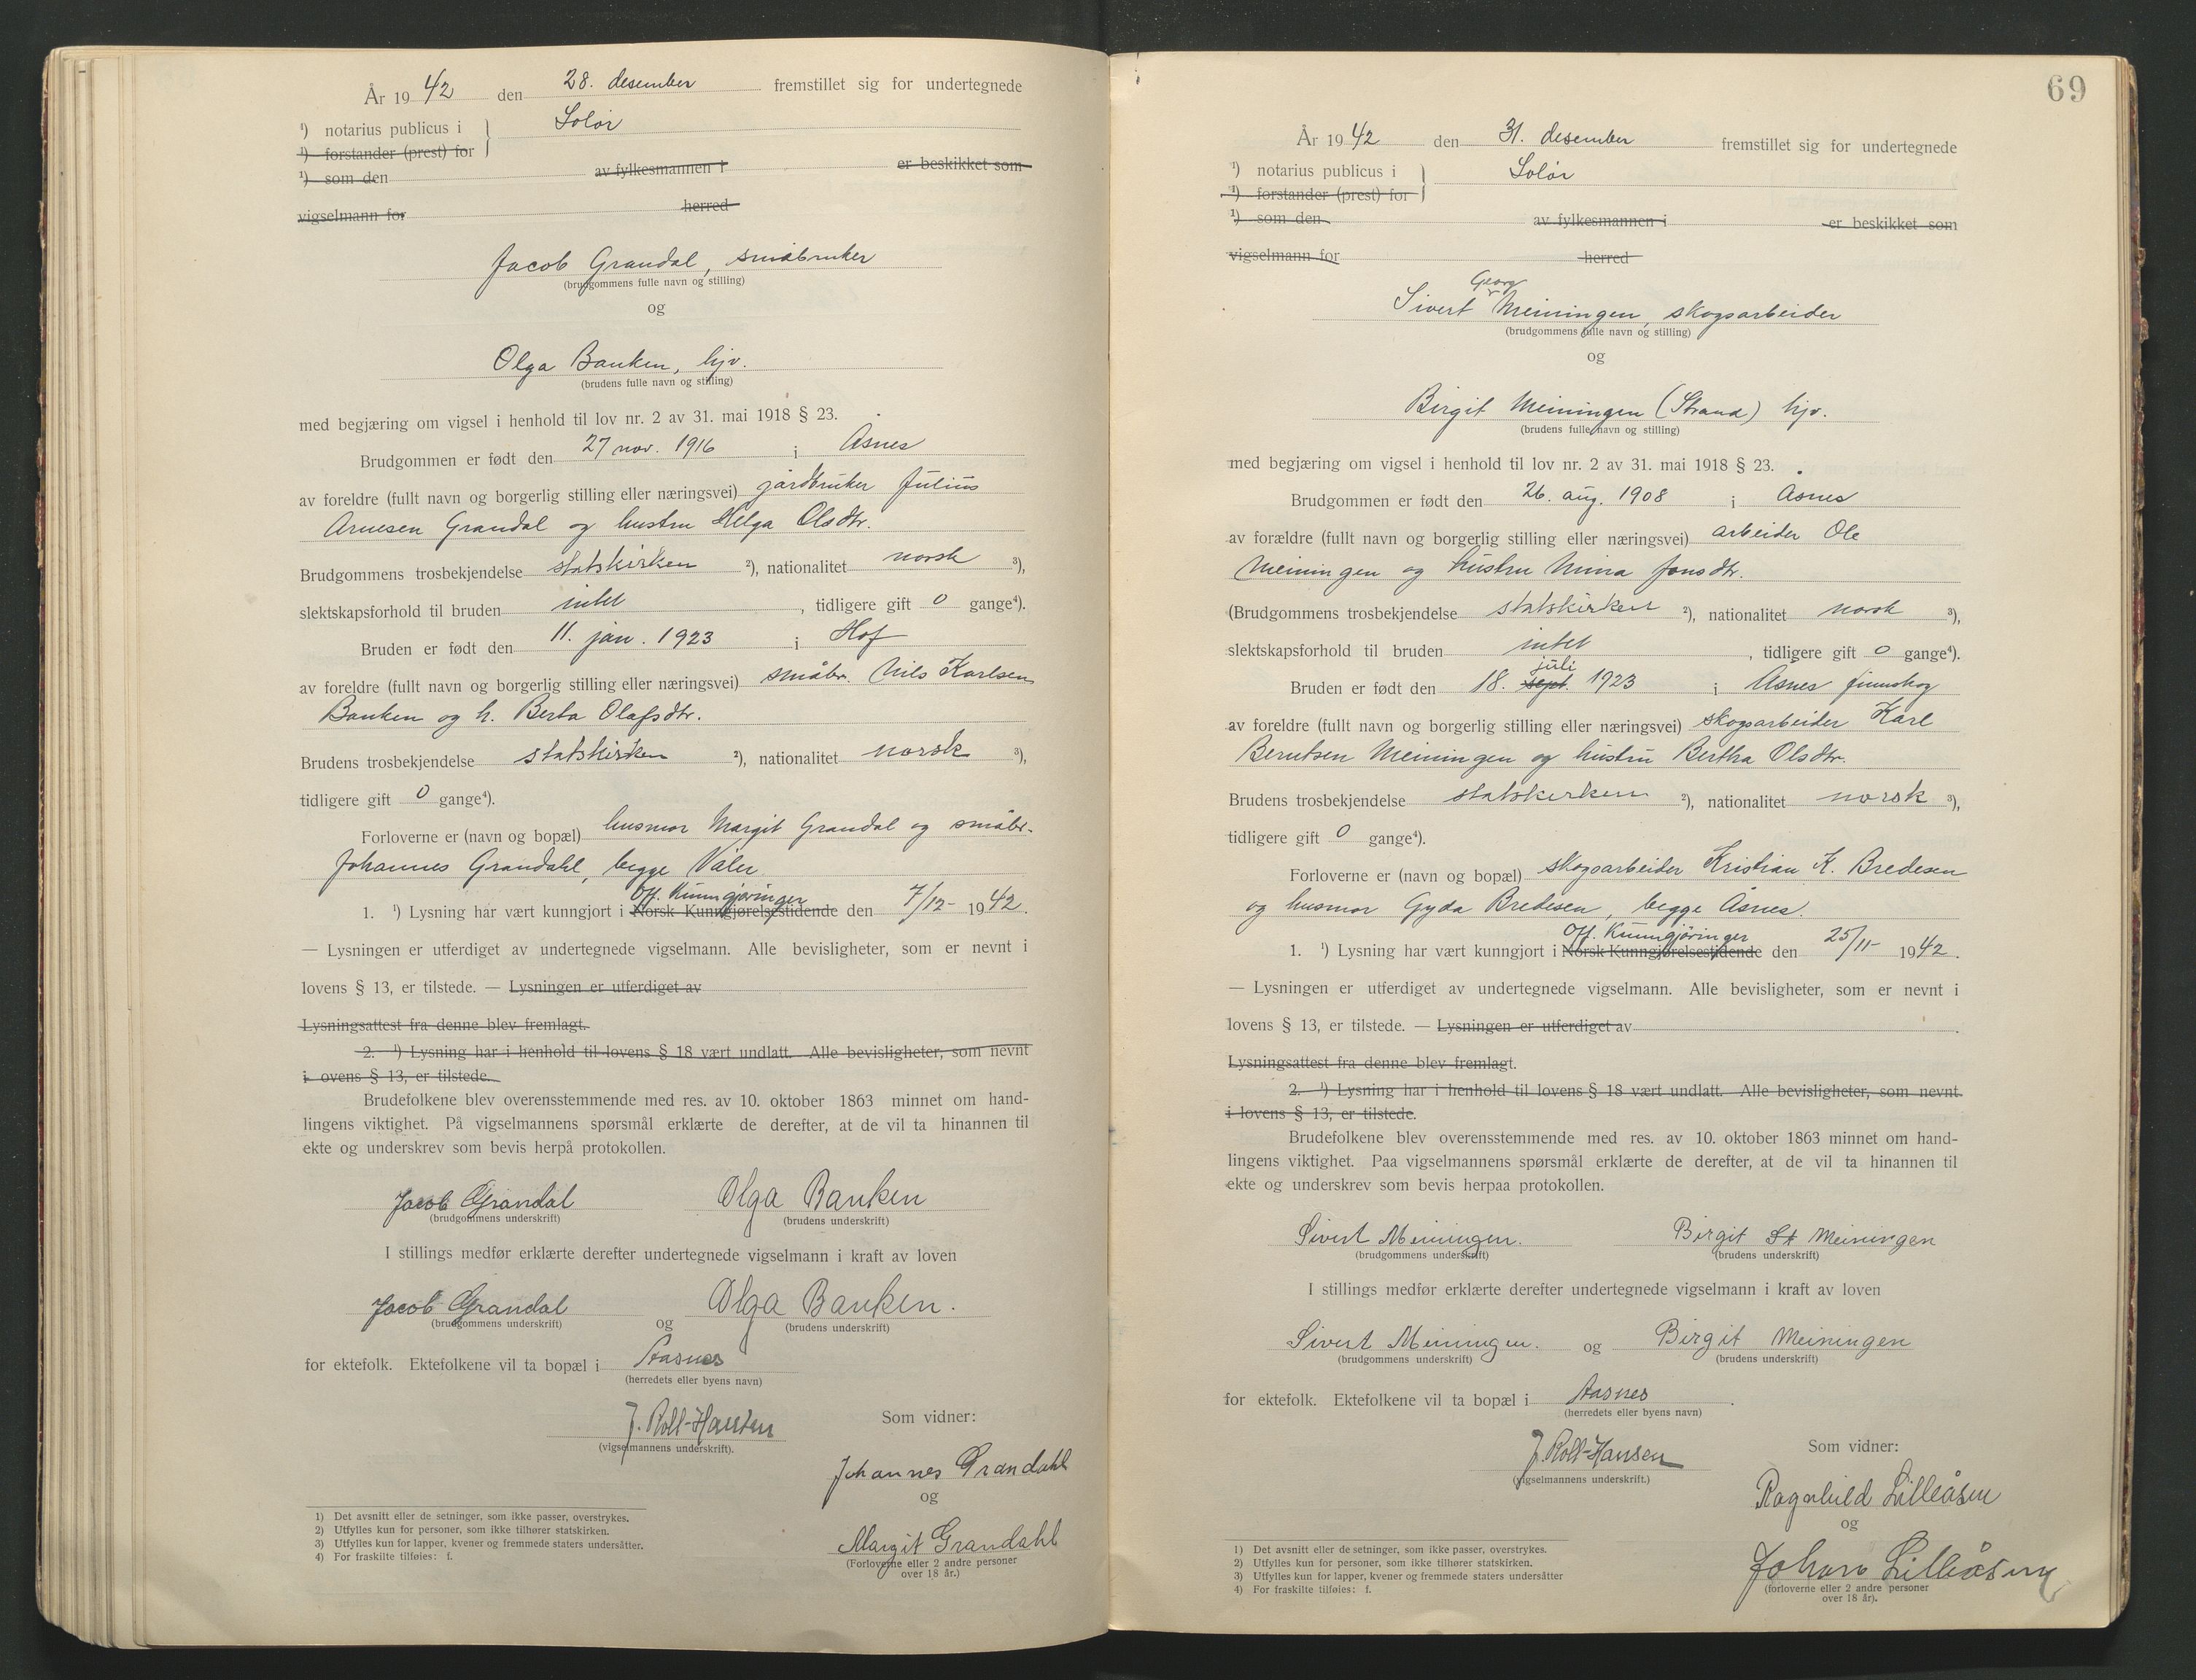 År 19 42 den 28. desember fremstillet sig for undertegnede
¹) notarius publicus i } Solør
¹) forstander (prest) for
¹) som den av fylkesmannen i er beskikket som
vigselmann for herred
Jacob Grandal, småbruker
(brudgommens fulle navn og stilling)
og
Olga Banken, hjv.
(brudens fulle navn og stilling)
med begjæring om vigsel i henhold til lov nr. 2 av 31. mai 1918 § 23.
Brudgommen er født den 27 nov. 1916 i Åsnes
av foreldre (fullt navn og borgerlig stilling eller næringsvei) gårdbruker Julius
Arnesen Grandal og hustru Helga Olsdtr.
Brudgommens trosbekjendelse statskirken ²), nationalitet norsk ³),
slektskapsforhold til bruden intet , tidligere gift 0 gange⁴).
Bruden er født den 11. jan. 1923 i Hof
av foreldre (fullt navn og borgerlig stilling eller næringsvei) småbr. Nils Karlsen
Banken og h. Berta Olafsdtr.
Brudens trosbekjendelse statskirken ²), nationalitet norsk ³),
tidligere gift 0 gange⁴).
Forloverne er (navn og bopæl) husmor Margit Grandal og småbr.
Johannes Grandahl, begge Våler
Off. Kunngjøringer
1. ¹) Lysning har vært kunngjort i Norsk Kunngjørelsestidende den 7/12- 19 42.
— Lysningen er utferdiget av undertegnede vigselmann. Alle bevisligheter, som er nevnt i
lovens § 13, er tilstede. — Lysningen er utferdiget av
Lysningsattest fra denne blev fremlagt.
2. ¹) Lysning har i henhold til lovens § 18 vært undlatt. Alle bevisligheter, som nevnt
i ovens § 13, er tilstede.
Brudefolkene blev overensstemmende med res. av 10. oktober 1863 minnet om hand-
lingens viktighet. På vigselmannens spørsmål erklærte de derefter, at de vil ta hinannen til
ekte og underskrev som bevis herpå protokollen.
Jacob Grandal Olga Banken
(brudgommens underskrift) (brudens underskrift)
I stillings medfør erklærte derefter undertegnede vigselmann i kraft av loven
Jacob Grandal og Olga Banken.
(brudgommens underskrift) (brudens underskrift)
for ektefolk. Ektefolkene vil ta bopæl i Aasnes
(herredets eller byens navn)
J. Roll-Hansen
(vigselmannens underskrift).
Som vidner:
Johannes Grandahl
og
Margit Grandahl
(Forloverne eller 2 andre personer
over 18 år.)
1) Det avsnitt eller de setninger, som ikke passer, overstrykes.
2) Utfylles kun for personer, som ikke tilhører statskirken.
3) Utfylles kun for lapper, kvener og fremmede staters undersåtter.
4) For fraskilte tilføies: f.
69
År 19 42 den 31. desember fremstillet sig for undertegnede
¹) notarius publicus i } Solør
¹) forstander (prest) for
¹) som den av fylkesmannen i er beskikket som
vigselmann for herred
Georg
Sivert Meiningen, skogsarbeider
(brudgommens fulle navn og stilling)
og
Birgit Meiningen (Strand) hjv.
(brudens fulle navn og stilling)
med begjæring om vigsel i henhold til lov nr. 2 av 31. mai 1918 § 23.
Brudgommen er født den 26. aug. 1908 i Åsnes
av forældre (fullt navn og borgerlig stilling eller næringsvei) arbeider Ole
Meiningen og hustru Mina Jonsdtr.
(Brudgommens trosbekjendelse statskirken ²), nationalitet norsk ³),
slektskapsforhold til bruden intet , tidligere gift 0 gange⁴).
juli
Bruden er født den 18. sept. 1923 i Åsnes finnskog
av foreldre (fullt navn og borgerlig stilling eller næringsvei) skogsarbeider Karl
Berntsen Meiningen og hustru Bertha Olsdtr.
Brudens trosbekjendelse statskirken ²), nationalitet norsk ³),
tidligere gift 0 gange⁴).
Forloverne er (navn og bopæl) skogsarbeider Kristian K. Bredesen
og husmor Gyda Bredesen, begge Åsnes.
Off. Kunngjøringer
1. ¹) Lysning har vært kunngjort i Norsk Kunngjørelsestidende den 25/11- 19 42.
— Lysningen er utferdiget av undertegnede vigselmann. Alle bevisligheter, som er nevnt i
lovens § 13, er tilstede. — Lysningen er utferdiget av
Lysningsattest fra denne blev fremlagt.
2. ¹) Lysning har i henhold til lovens § 18 vært undlatt. Alle bevisligheter, som nevnt
i lovens § 13, er tilstede.
Brudefolkene blev overensstemmende med res. av 10. oktober 1863 minnet om hand-
lingens viktighet. Paa vigselmannens spørsmål erklærte de derefter, at de vil ta hinannen til
ekte og underskrev som bevis herpaa protokollen.
Sivert Meiningen. Birgit St Meiningen
(brudgommens underskrift) (brudens underskrift)
I stillings medfør erklærte derefter undertegnede vigselmann i kraft av loven
Sivert Meiningen. og Birgit Meiningen
(brudgommens underskrift) (brudens underskrift)
for ektefolk. Ektefolkene vil ta bopæl i Aasnes .
(herredets eller byens navn)
J. Roll-Hansen
(vigselmannens underskrift.)
Som vidner:
Ragnhild Lilleåsen
og
Johan Lilleåsen
(forloverne eller 2 andre personer
over 18 år).
1) Det avsnitt eller de setninger, som ikke passer, overstrykes.
2) Utfylles kun for personer, som ikke tilhører statskirken.
3) Utfylles kun for lapper, kvener og fremmede staters undersåtter
4) For fraskilte tilføies: f.